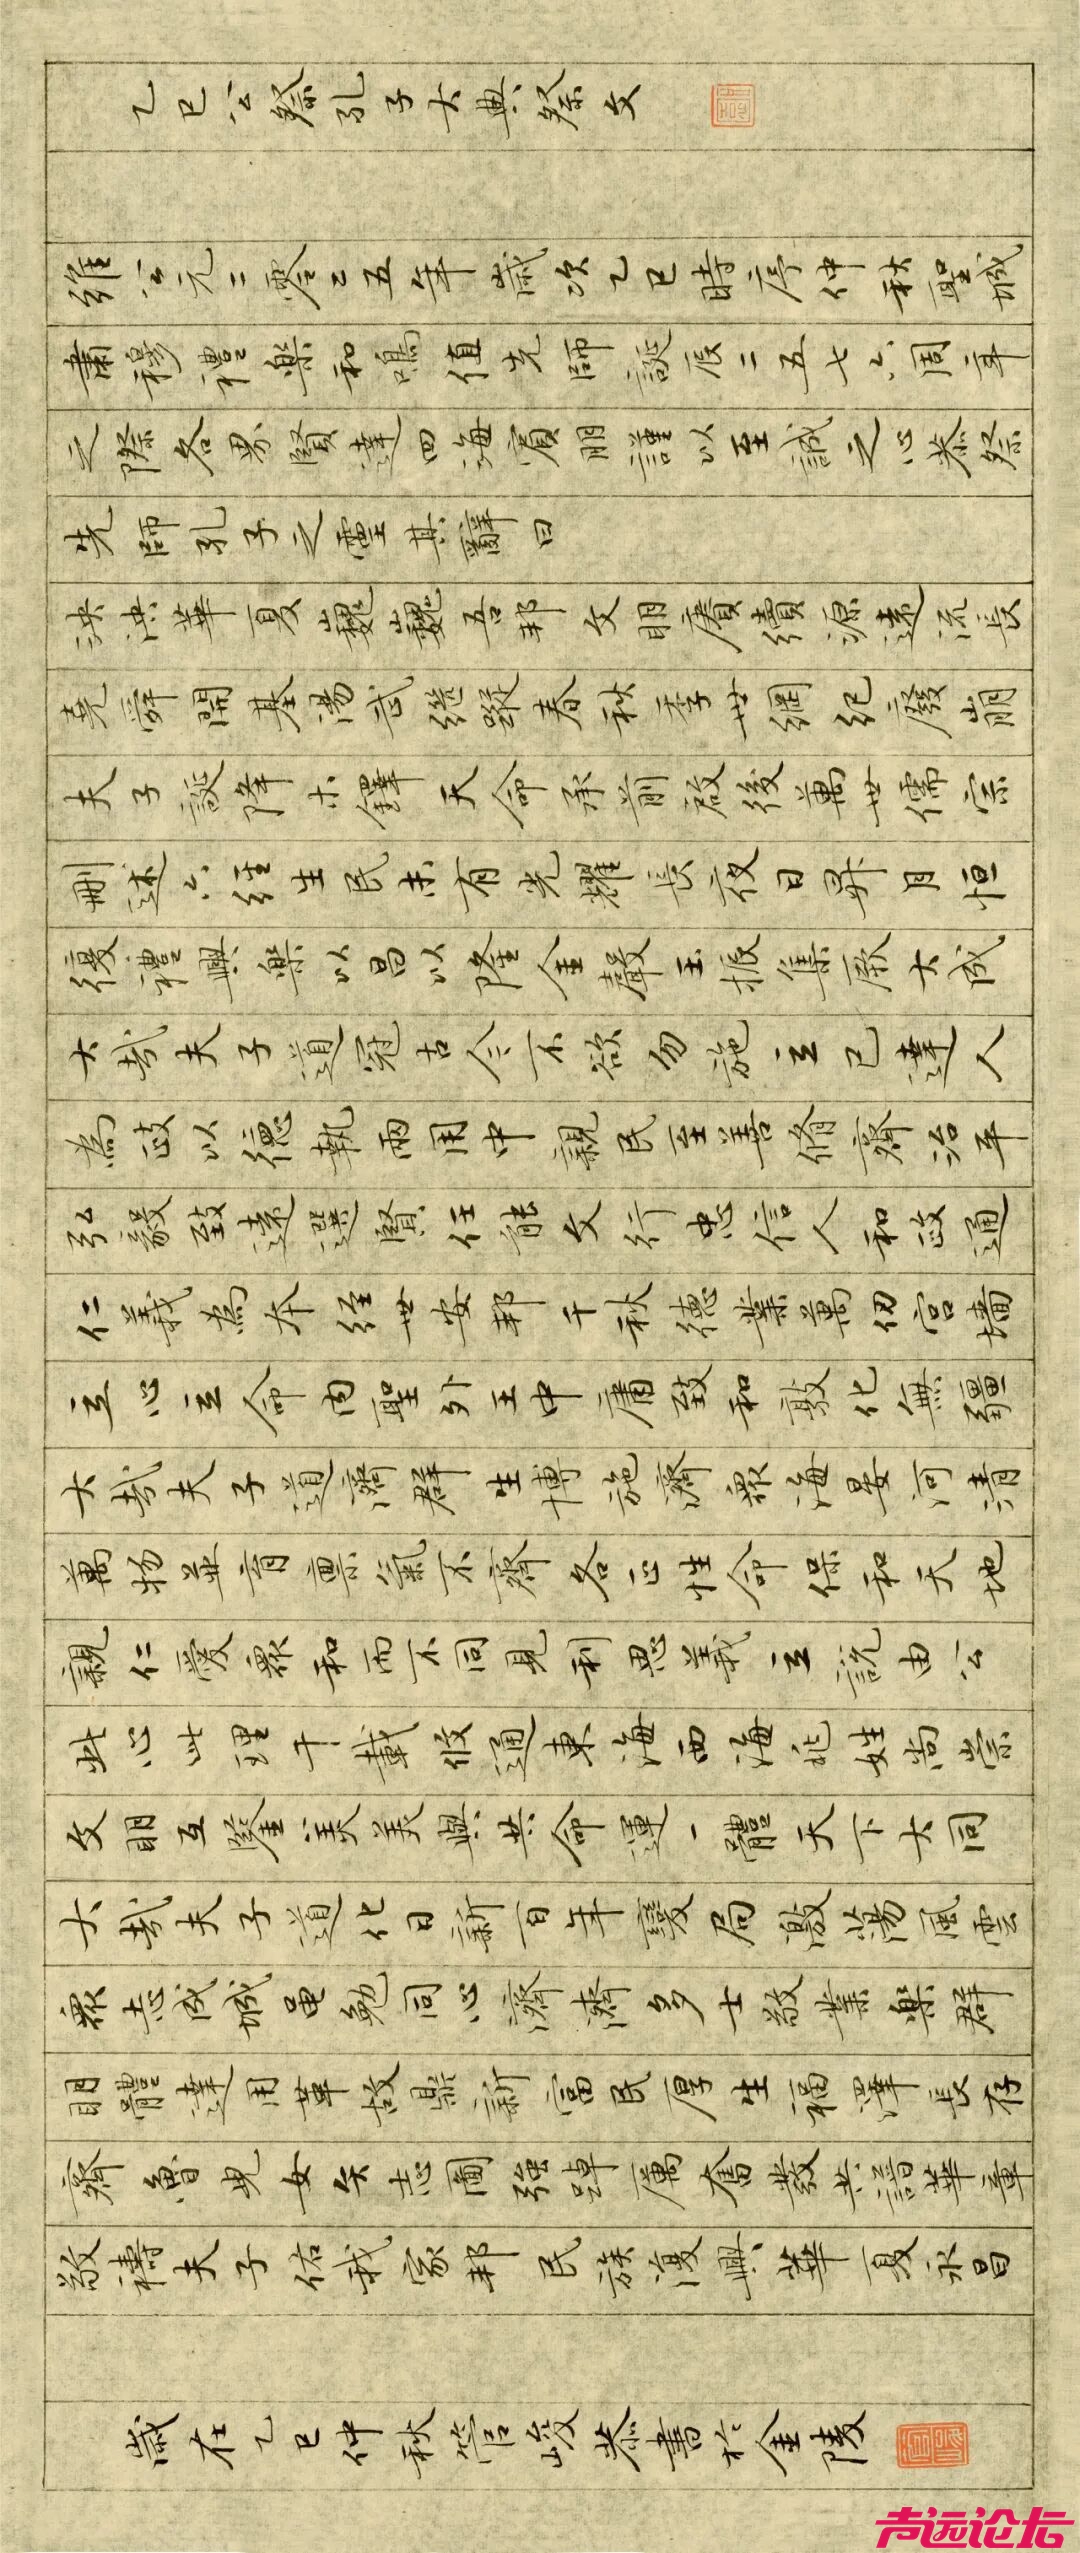 乙巳公祭孔子大典祭文
維公元二零二五年歲次乙巳時序仲秋聖城
肅穆禮樂和鳴值先師誕辰二五七六周年
之際各界賢達四海賓朋謹以至誠之心恭祭
先師孔子之靈其辭曰
泱泱華夏巍巍吾邦文明賡續源遠流長
堯舜開基湯武繼蹤春秋季世綱紀廢崩
夫子誕降木鐸天命承前啟後萬世儒宗
刪述六經生民未有光耀長夜日昇月恒
復禮興樂以昌以隆金聲玉振集厥大成
大哉夫子道冠古今不欲勿施立己達人
為政以德執兩用中親民至善脩齊治平
弘毅致遠選賢任能文行忠信人和政通
仁義為本經世安邦千秋德業萬仞宮墻
立心立命內聖外王中庸致和敦化無疆
大哉夫子道濟群生博施濟衆海晏河清
萬物並育稟氣不齊各正性命保和天地
親仁愛衆和而不同見利思義立說由公
此心此理千載攸通東海西海化姓尚崇
文明互鑒美美與共命運一體天下大同
大哉夫子道化日新百年變局激蕩風雲
衆志成城黽勉同心濟濟多士敬業樂群
明體達用革故鼎新富民厚生福澤長存
齊魯兒女矢志圖强踔厲奮發共譜華章
敬禱夫子佑我家邦民族復興華夏永昌
歲在乙巳仲秋管峻恭書於金陵
声远论坛